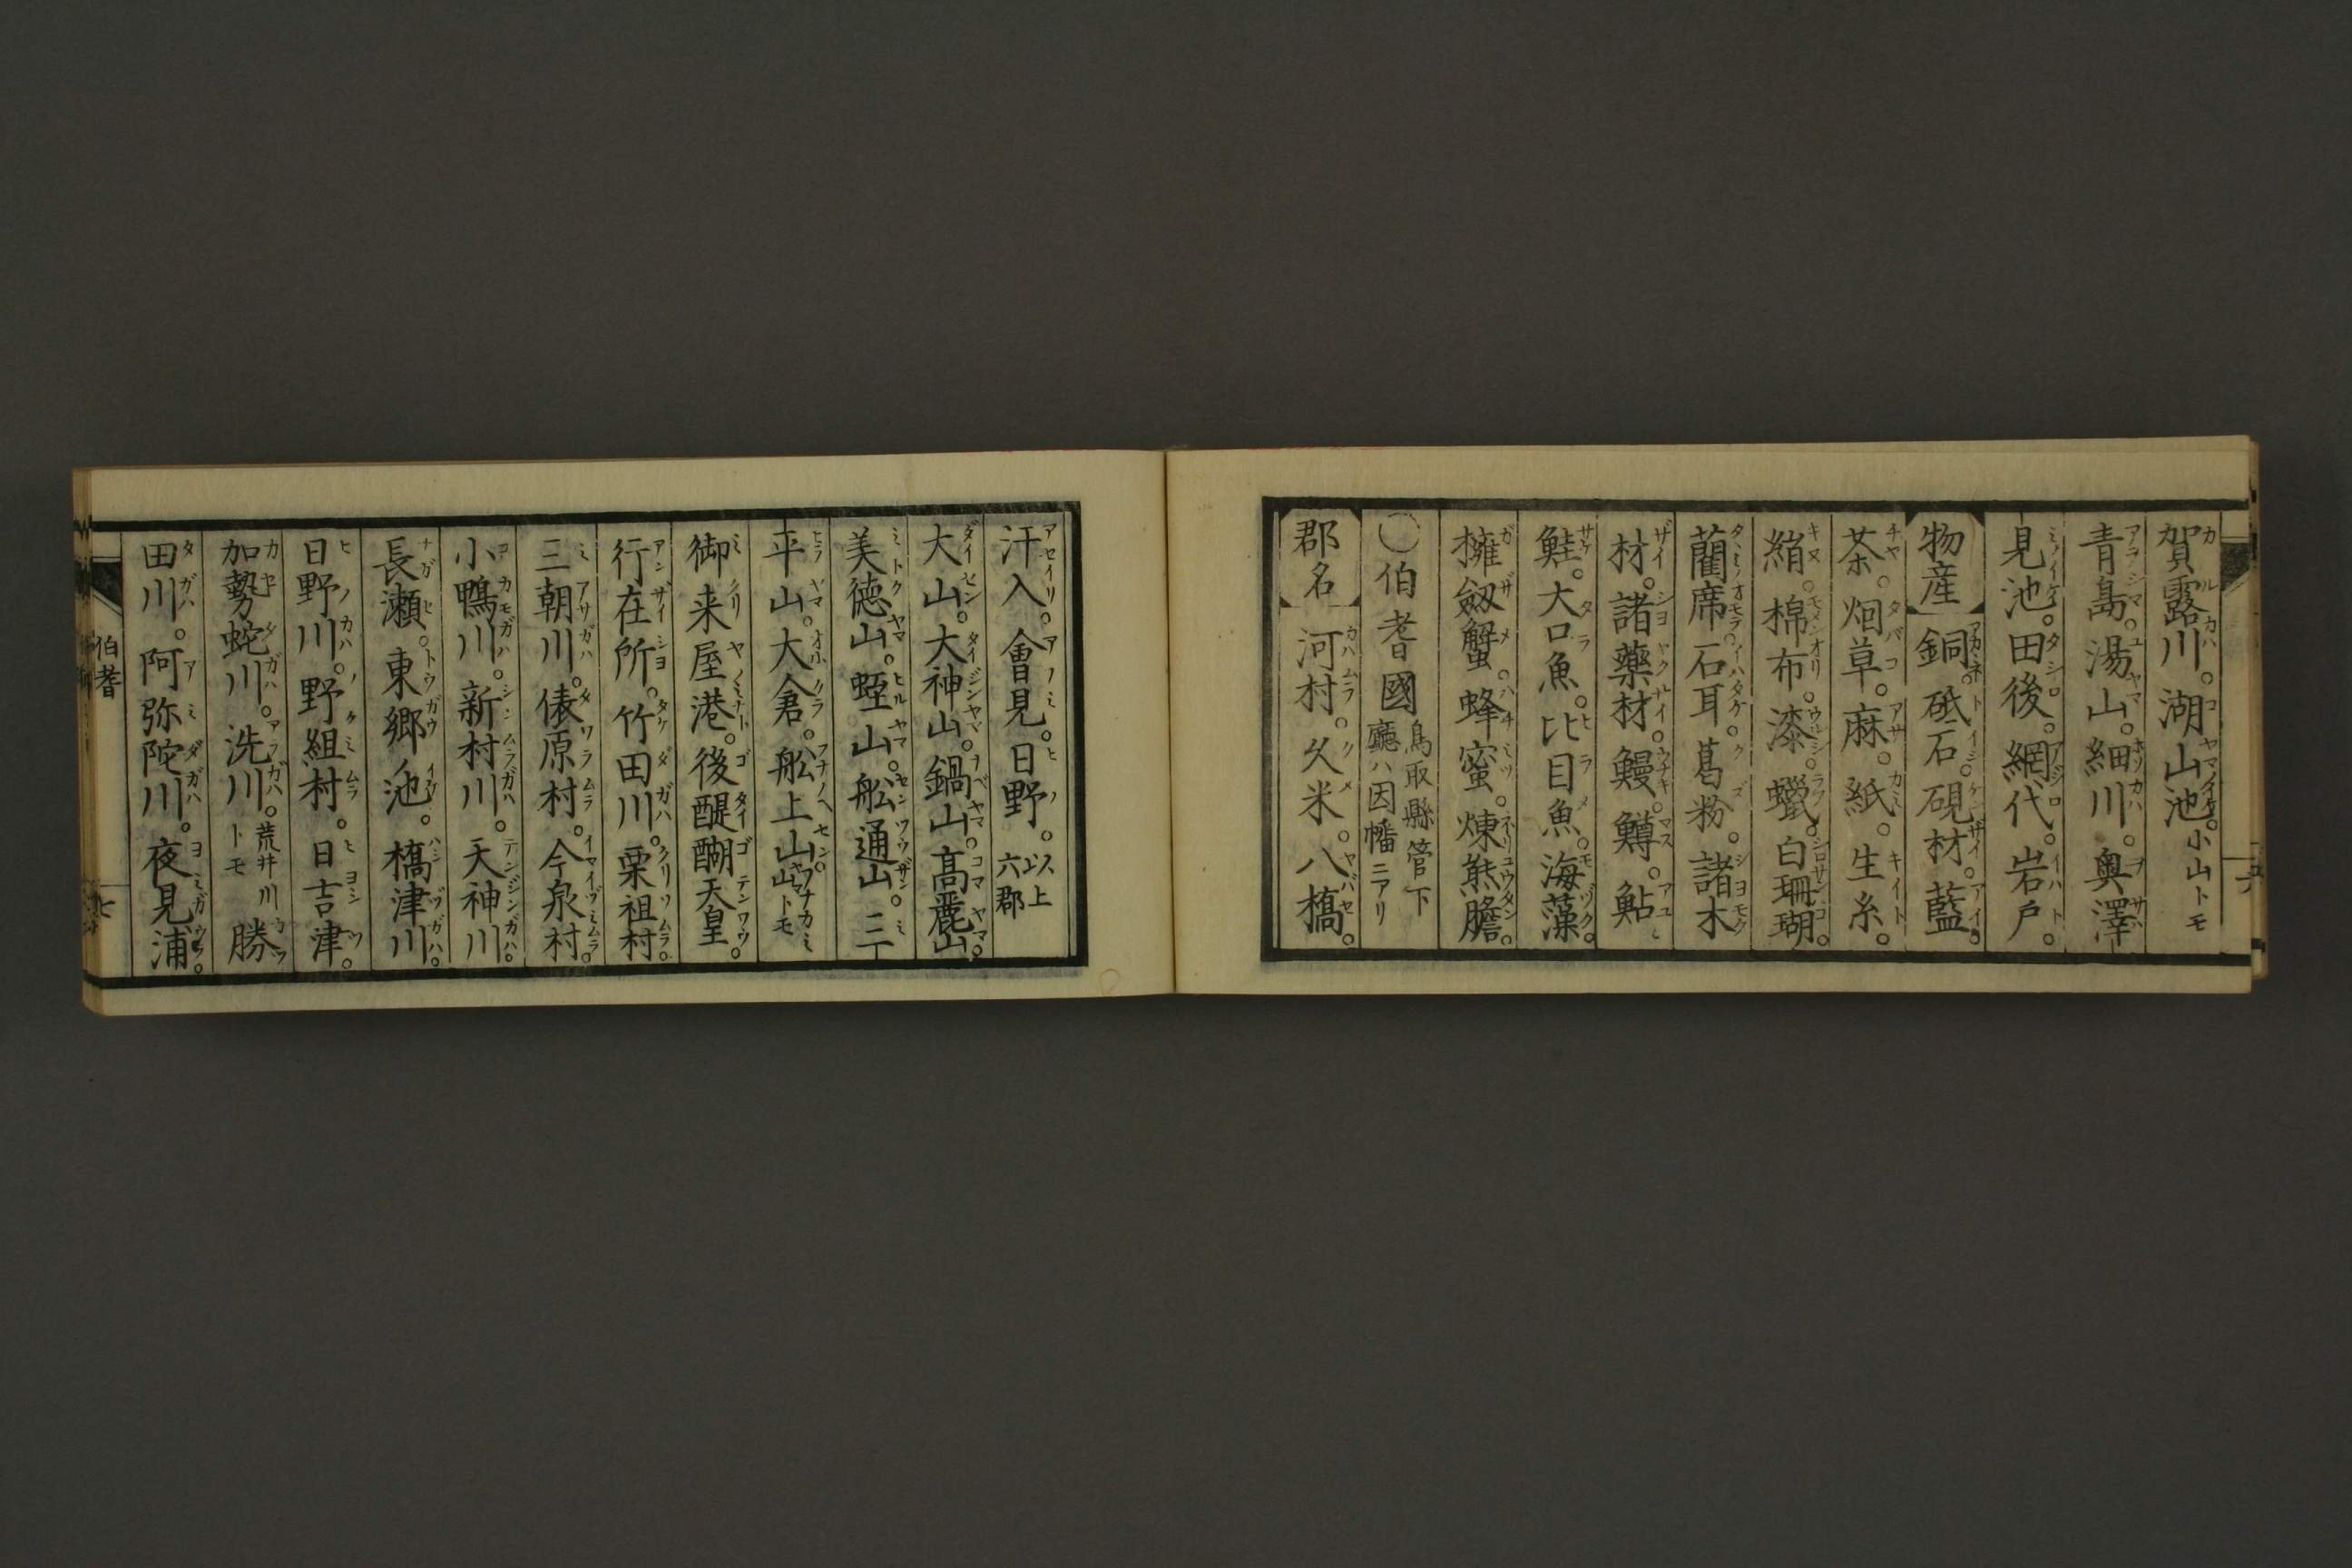 賀露川。湖山池。小山トモ
青島。湯山。細川。奥澤
見池。田後。網代。岩戸。
物産 銅。砥石。硯材。藍。
茶。烟草。麻。紙。生糸。
絹。棉布。漆。蠟。白珊瑚。
藺席。石耳。葛粉。諸木
材。諸藥材。鰻。鱒。鮎。
鮭。大口魚。比目魚。海藻。
擁劔蟹。蜂蜜。煉熊膽。
〇伯耆國 鳥取縣管下廳ハ因幡ニアリ
郡名 河村。久米。八橋。
汗入。會見。日野。以上六郡
大山。大神山。鍋山。高麗山。
美徳山。蛭山。舩通山。三
平山。大倉。舩上山。
御来屋港。後醍醐天皇。
行在所。竹田川。栗祖村。
三朝川。俵原村。今泉村。
小鴨川。新村川。天神川。
長瀬。東郷池。橋津川。
日野川。野組村。日吉津。
加勢蛇川。洗川。荒井川トモ 勝
田川。阿弥陀川。夜見浦。
伯耆
七